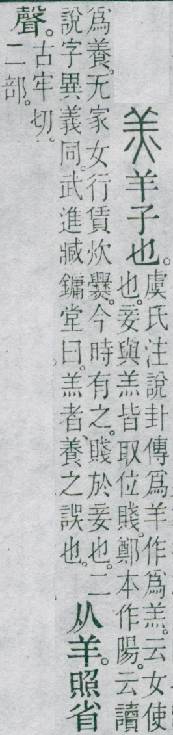 羔羊子也。
虞氏注說卦傳爲羊作爲羔。云女使
也。妾與羔皆取位賤。鄭本作陽。云讀
爲養。无家女行賃炊爨。今時有之。賤於妾也。二
說字異義同。武進臧鏞堂曰。羔者養之誤也。
从羊。照省
聲。
古牢切。
二部。